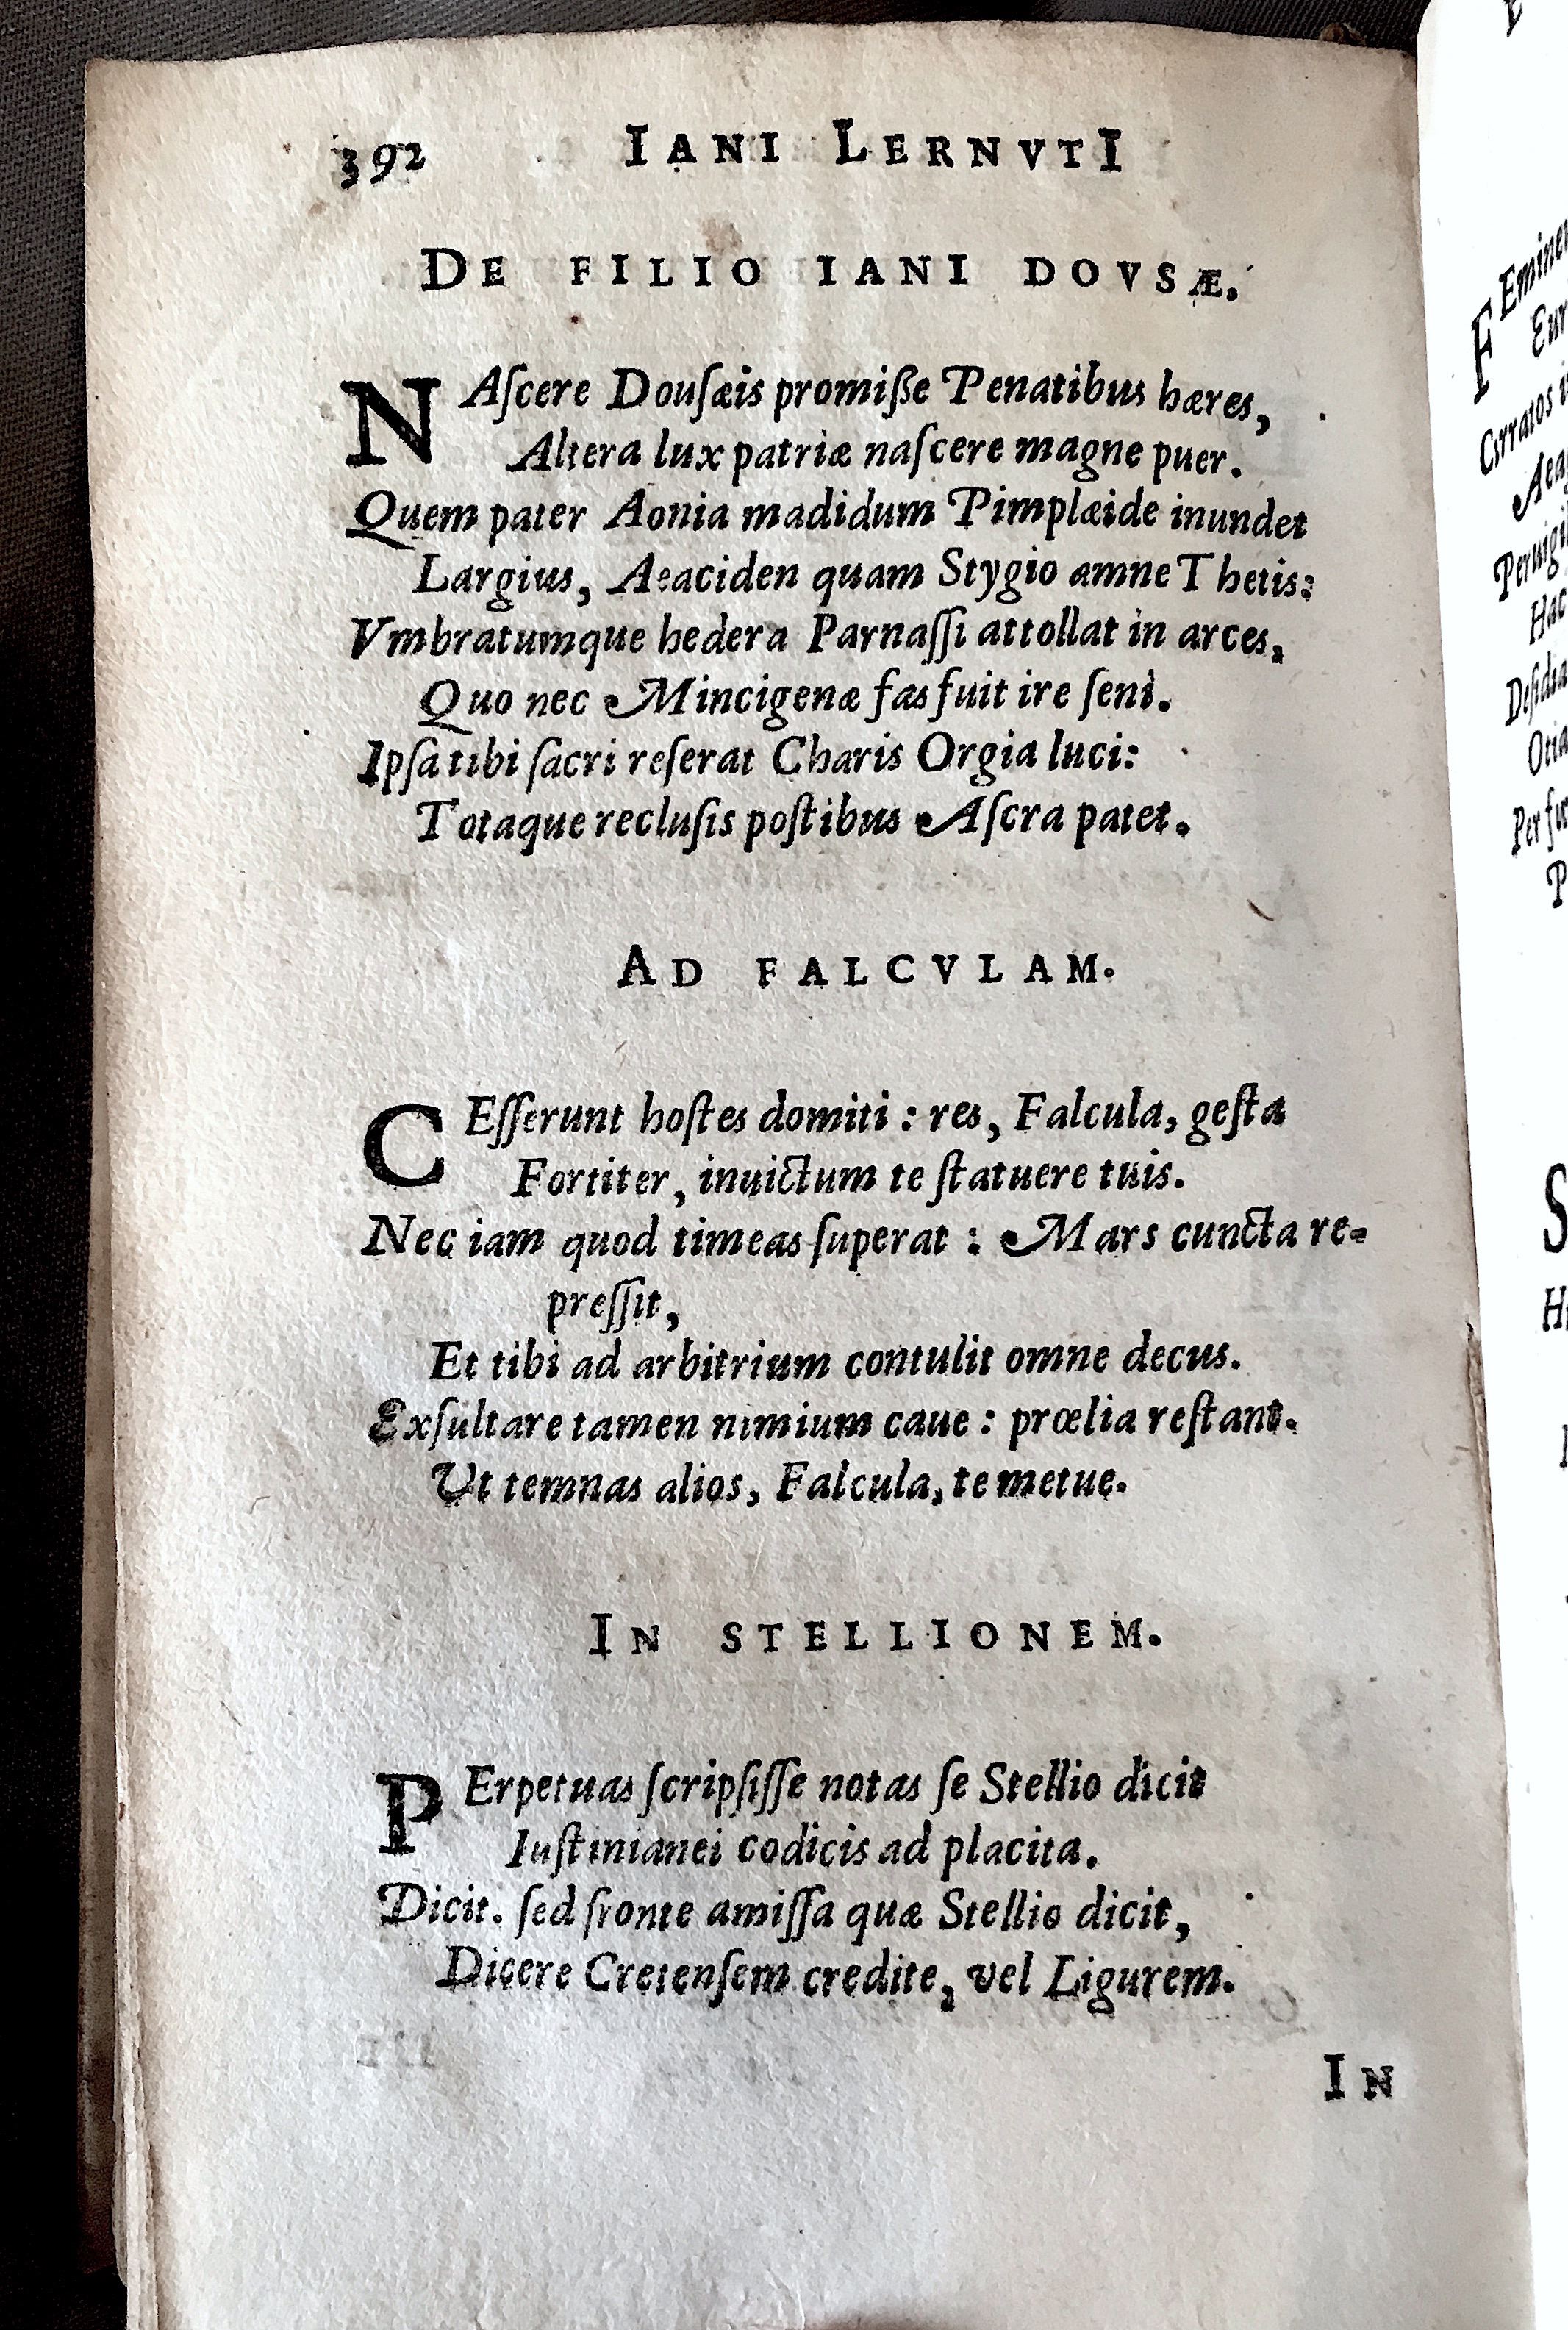 392 IANI LERNVTI
DE FILIO IANI DOVSÆ.
NAſcere Douſæis promiße Penatibus hæres,
Altera lux patriæ naſcere magne puer.
Quem pater Aonia madidum Pimplæide inundet
Largius, Aeaciden quam Stygio amne Thetis:
Vmbratumque hedera Parnaſſi attollat in arces,
Quo nec Mincigenæ fas fuit ire ſeni.
Ipſa tibi ſacri reſerat Charis Orgia luci:
Totaque recluſis poſtibus Aſcra patet.
AD FALCVLAM.
CEſſerunt hoſtes domiti : res, Falcula, geſta
Fortiter, inuictum te ſtatuere tuis.
Nec iam quod timeas ſuperat : Mars cuncta re-
preſſit,
Et tibi ad arbitrium contulit omne decus.
Exſultare tamen nimium caue : prœlia reſtant.
Ut temnas alios, Falcula, te metue.
IN STELLIONEM.
PErpetuas ſcripſiſſe notas ſe Stellio dicit
Iuſtinianei codicis ad placita.
Dicit. ſed fronte amiſſa quæ Stellio dicit,
Dicere Cretenſem credite, vel Ligurem.
IN